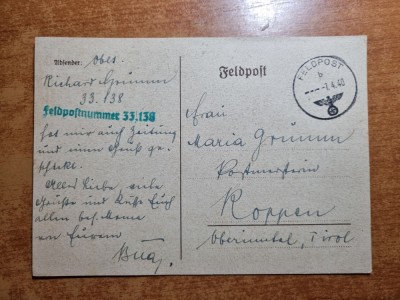 Absender: Obes.
Richard Grumm
33.138
Feldpostnummer 33.138
hat mir auch Zeitung
und einen Gruß ge-
schickt.
Alles Liebe, viele
Grüße und Küße Euch
allen bes. Mama
an Eurem
Feldpost
FELDPOST
b
-1.4.40
Frau
Maria Grumm
Postmeisterin
Roppen
Oberinntal, Tirol